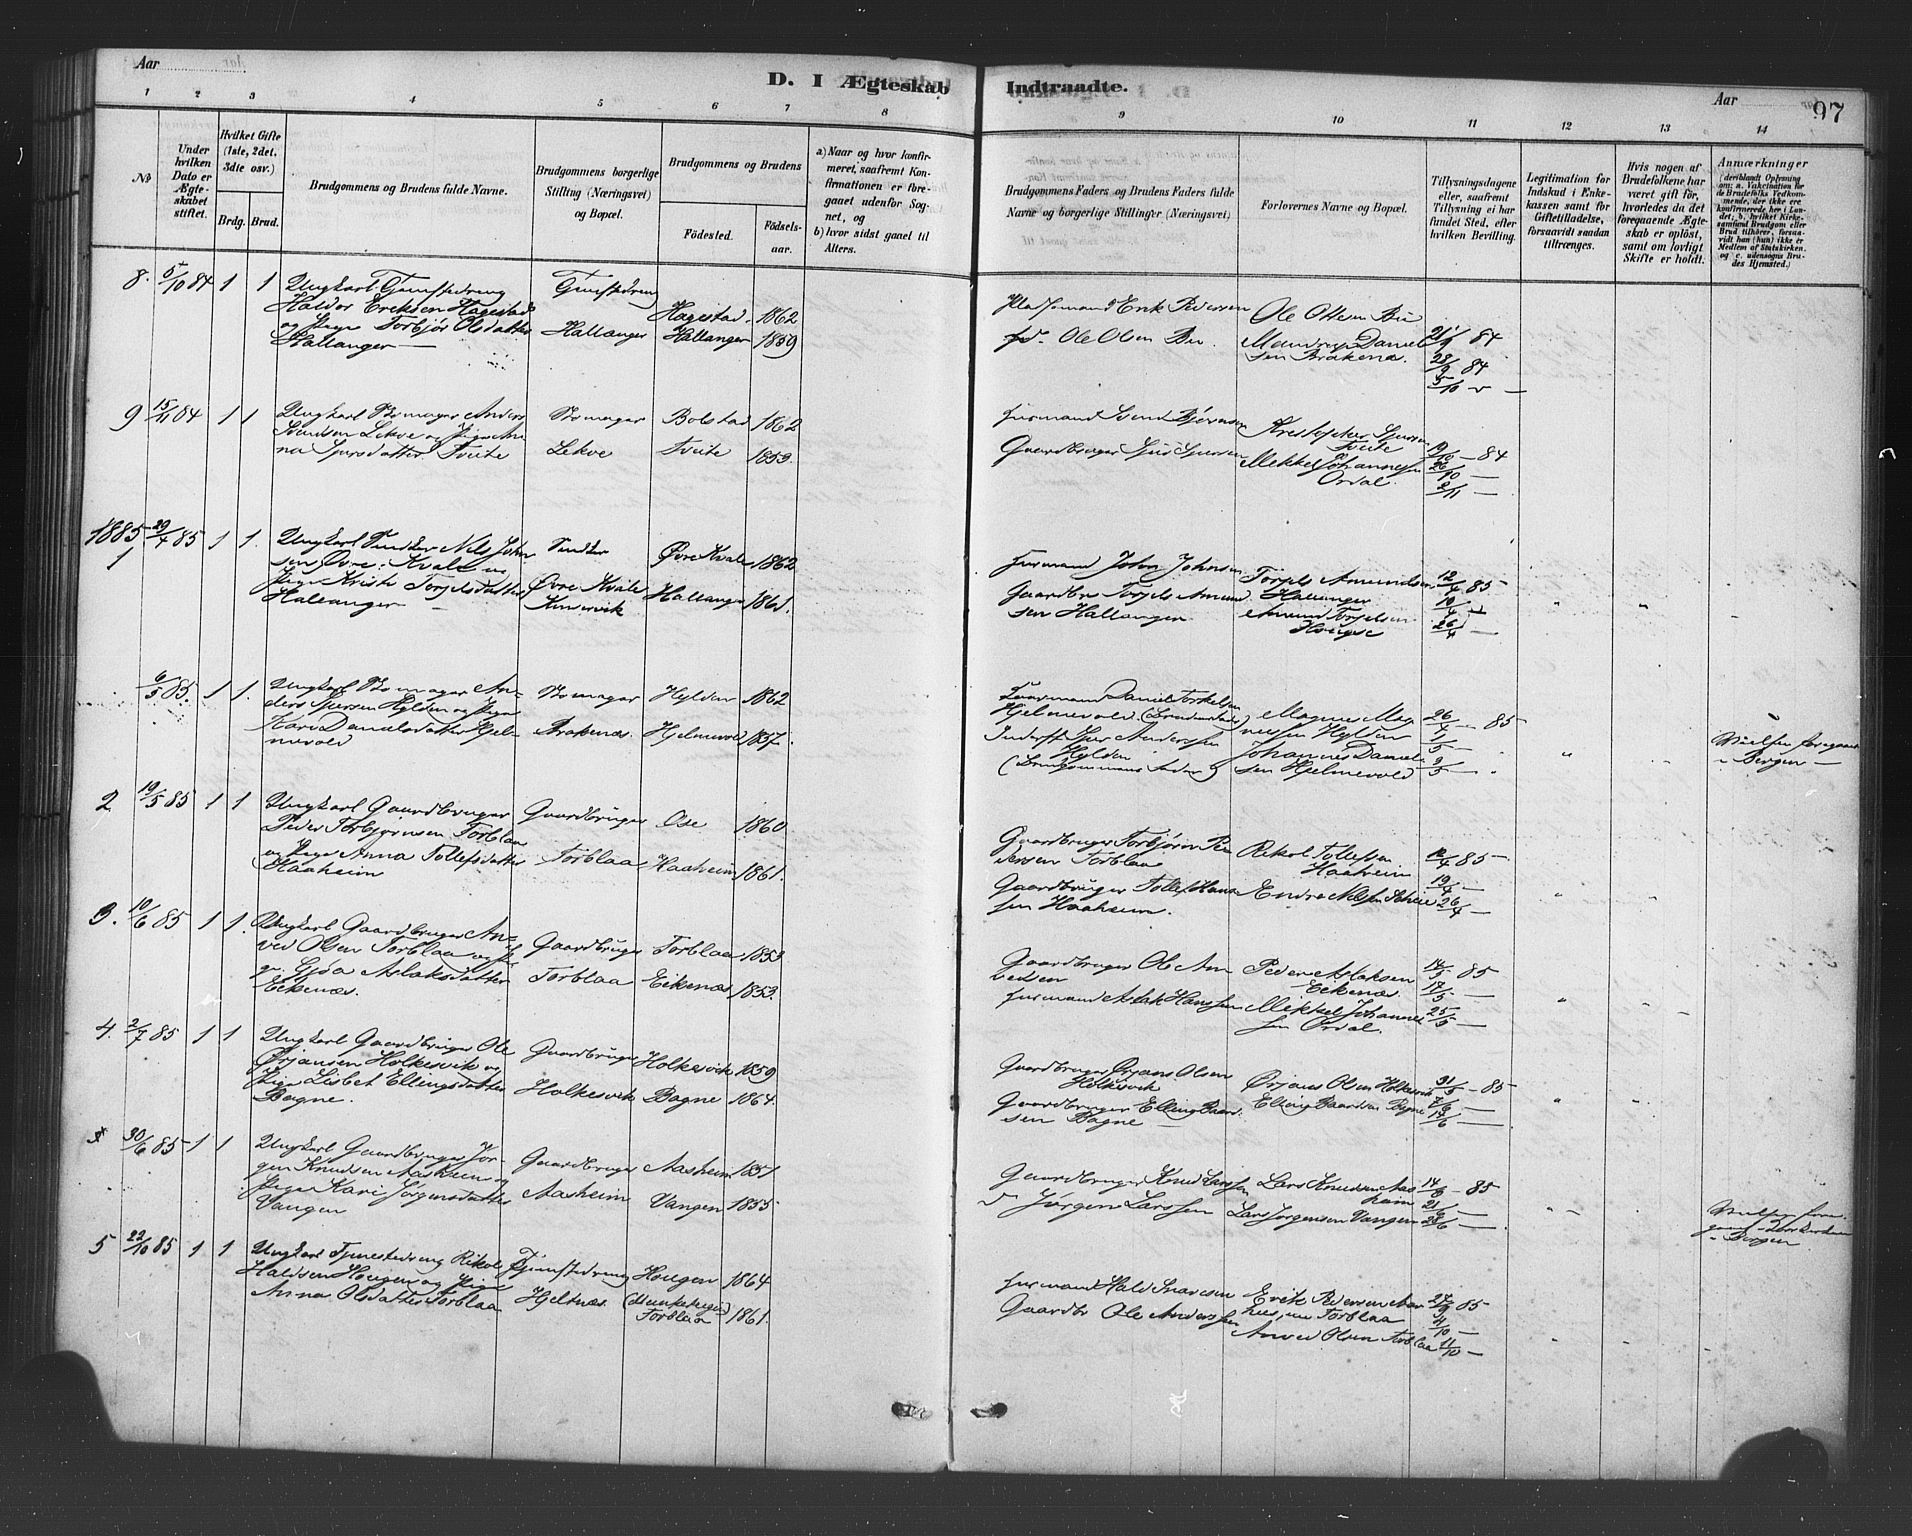 Aar
D. I Ægteskab Indtraadte.
Aar
97
1 2 3 4 5 6 7 8 9 10 11 12 13 14
No
Under hvilken Dato er Ægteskabet stiftet.
Hvilket Gifte (1ste, 2det, 3die osv.)
Brdg. Brud.
Brudgommens og Brudens fulde Navne.
Brudgommens borgerlige Stilling (Næringsvei) og Bopæl.
Brudgommens og Brudens
Fødested.
Fødselsaar.
a) Naar og hvor konfirmeret, saafremt Konfirmationen er foregaaet udenfor Sognet, og
b) hvor sidst gaaet til Alters.
Brudgommens Faders og Brudens Faders fulde Navne og borgerlige Stillinger (Næringsvei)
Forlovernes Navne og Bopæl.
Tillysningsdagene eller, saafremt Tillysning ei har fundet Sted, efter hvilken Bevilling.
Legitimation for Indskud i Enkekassen samt for Giftetilladelse, forsaavidt saadan tiltrænges.
Hvis nogen af Brudefolkene har været gift før, hvorledes da det foregaaende Ægteskab er opløst, samt om lovligt Skifte er holdt.
Anmærkninger
8. 5/10 84 1 1 Ungkarl Tjenestedreng
Haldor Eriksen Hagestad
og Pige Torbjør Olsdatter
Hallanger —
Tjenestedreng
Hallanger
Hagestad 1862
Hallanger 1859
Pladsmand Erik Pedersen
do Ole Olsen Bu
Ole Ottesen Bu
Mandrup Daniel
sen Bråkenæs.
21/9 84
28/9 84
5/10 —
9 15/11 84 1 1 Ungkarl Skomager Anders
Svendsen Lekve og Pige An
na Sjursdatter Tveite
Skomager
Lekve
Bolstad 1862
Tveite 1853.
Husmand Svend Bjørnsen
Gaardbruger Sjur Sjursen
Kristofer Sjursen
Tveite
Mikkel Johannesen
Ordal.
19/10 — 84
26/10 —
2/11 —
1885
1 29/4 85 1 1. Ungkarl Snedker Nils John
sen Øvre Kvale og
Pige Kristi Torjelsdatter
Hallanger —
Snedker
Øvre Kvale
Kinservik
Øvre Kvale 1862
Hallanger 1861.
Husmand John Johnsen
Gaardbr Torjels Amund
sen Hallanger
Torjels Amundsen
Hallanger
Amund Torjelsen
Hougse
12/4 85 —
19/4 —
26/4 —
6/5 85. 1 1. Ungkarl Skomager An-
ders Sjursen Hylden og Pige
Kari Danielsdatter Hjel-
mevold
Skomager
Brakenæs.
Hylden 1862
Hjelmevold 1857.
Daniel Torkelsen
Hjelmevold (Brudens Fader)
Inderst Sjur Anderssen
Hylden
(Brudgommens Fader)
Magnus Mag
nussen Hylden
Johannes Daniel
sen Hjelmevold
26/4 — 85
1/5 —
3/5 —
Vielsen foregaaet
i Bergen —
2 19/5 85 1 1 Ungkarl Gaardbruger
Peder Torbjørnsen Torblaa
og Pige Anna Tollefsdatter
Haaheim
Gaardbruger
Torblaa
Ose 1860
Haaheim 1861.
Gaardbruger Torbjørn Pe
dersen Torblaa
Gaardbruger Tollef Hans
sen Haaheim.
Rikol Tollefsen
Haaheim
Endre Nilsen
12/4 85 —
19/4 —
26/4 —
3. 10/6 85 1 1. Ungkarl Gaardbruger An-
ved Olsen Torblaa og Pi
ge Gjøa Aslaksdatter
Eikenæs.
Gaardbruger
Torblaa
Torblaa 1853
Eikenæs 1853.
Gaardbruger Ole An
vedsen
Husmand Aslak Hanssen
Peder Aslaksen
Eikenæs.
Mikkel Johannes
sen Ordal.
14/5 85
17/5 —
25/5 —
4. 2/7 85 1 1 Ungkarl Gaardbruger Ole
Ørjansen Holkesvik og
Pige Lisbet Ellingsdatter
Bagne.
Gaardbruger
Holkesvik
Holkesvik 1859
Bagne 1864.
Gaardbruger Ørjans Olsen
Holkesvik
Gaardbruger Elling Baard
sen Bagne —
Ørjans Olsen Holkesvik
Elling Baardsen Bagne
31/5 — 85
7/6 —
14/6 —
30/6 85 1 1 Ungkarl Gaardbruger Jør-
gen Knudsen Aasheim og
Pige Kari Jørgensdatter
Vangen
Gaardbruger
Aasheim
Aasheim 1851
Vangen 1855
Gaardbruger Knud Larssen
" Jørgen Larssen
Lars Knudsen Aas
heim
Lars Jørgensen Vangen
14/6 — 85
21/6 —
28/6 —
Vielsen fore-
gaaet i Domkirken
i Bergen
5 22/10 85 1 1 Ungkarl Tjenestedreng Rikol
Haldsen Hougen og Pige
Anna Olsdatter Torblaa
Tjenestedreng
Hjeltnæs.
Hougen 1864
Torblaa 1861.
Husmand Hald Ivarsen
Gaardbr Ole Anderssen
Erik Pedersen Aar
hus, nu Torblaa
Anved Olsen Torblaa
27/9 85
4/10 —
11/10 —